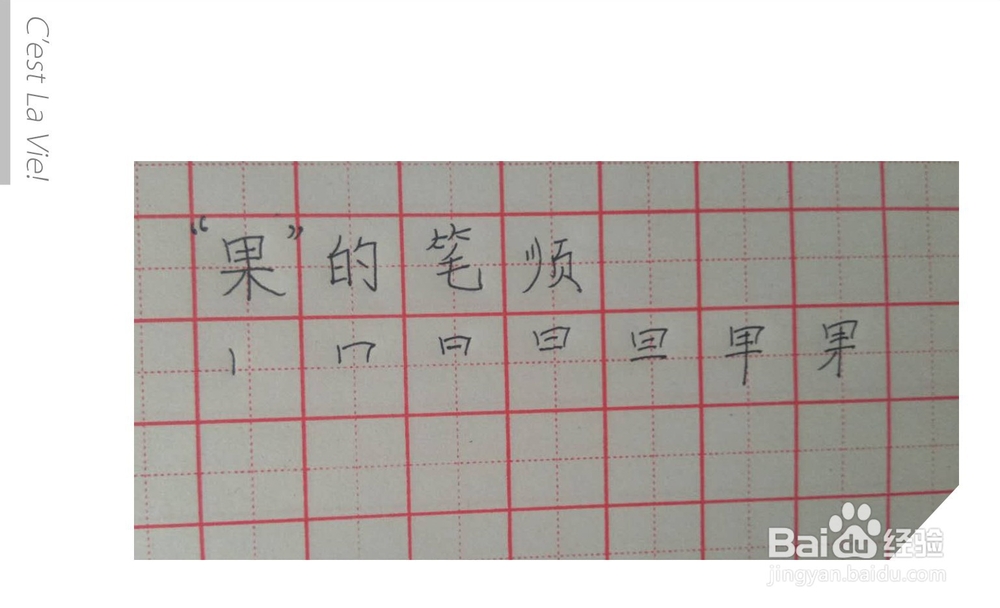 C'est La Vie!
“果”的笔顺
丨 冂 日 旦 甲 果
Bai du 经验
jingyan.baidu.com